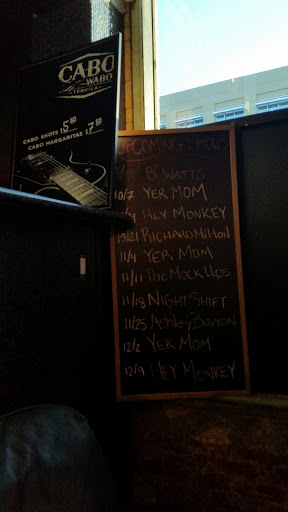 CABO
WABO
TEQUILA
CABO SHOTS $5.50
CABO MARGARITAS $7.50
UPCOMING SHOWS
B WATTS
10/7 YER MOM
HEY MONKEY
10/21 RICHARD MILTON
11/4 YER MOM
11/11 THE MOCK UPS
11/18 NIGHT SHIFT
11/25 Ashley Barron
12/2 YER MOM
12/9 HEY MONKEY